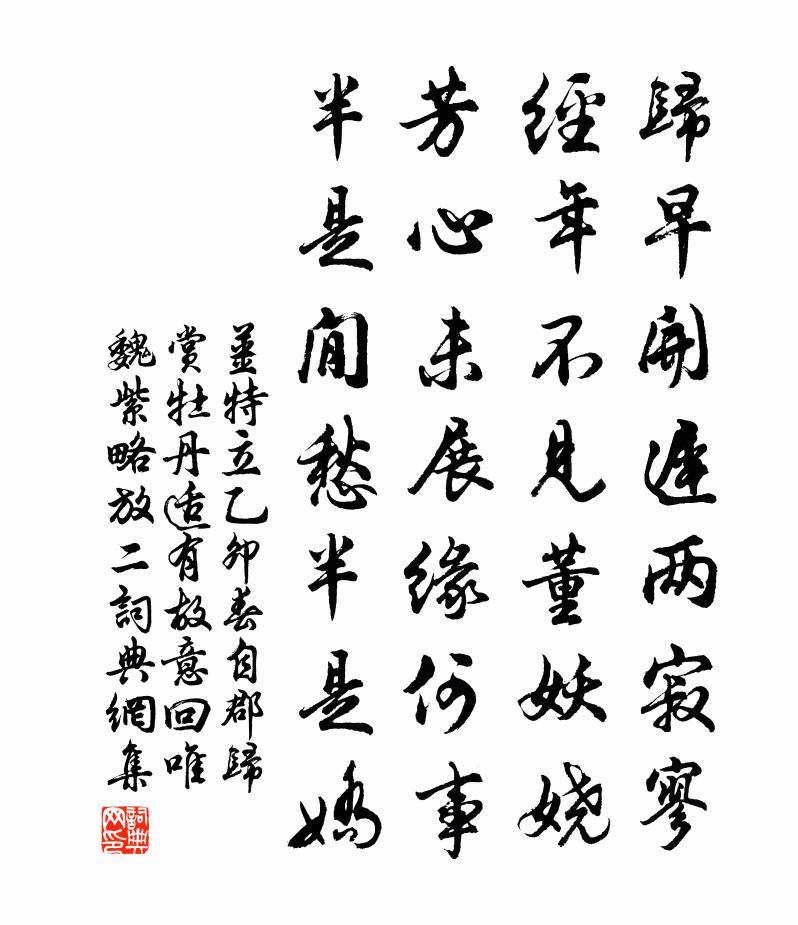 歸早開遲两寂寥
經年不見董妖娆
芳心未展緣何事
半是閒愁半是嬌
薑特立乙卯春自郡歸
賞牡丹适有故意回唯
魏紫略放二詞典網集
詞典網印